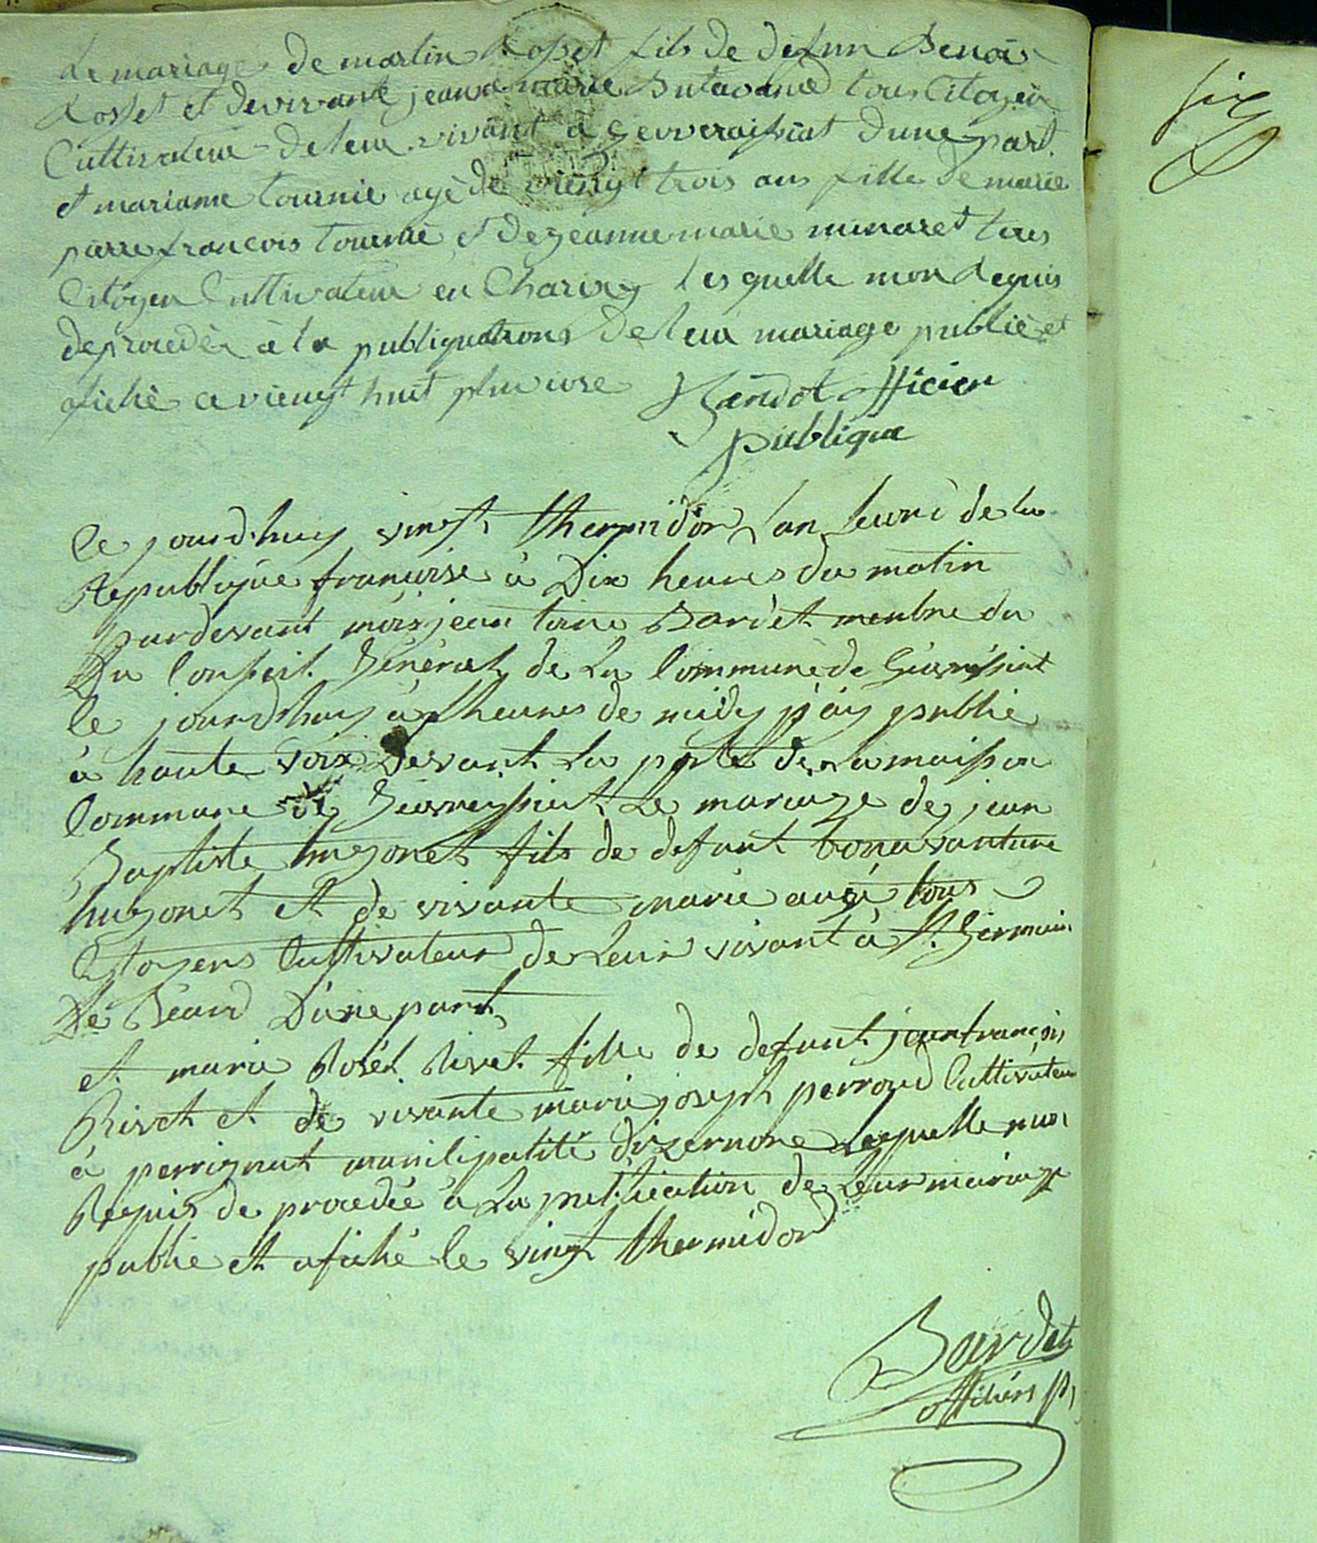 Le mariage de martin Rosset fils de defun Benoi
Rosset et de vivante jeanne marie Butavand tous Citoyen
Cultivateur de leur vivant a gevvraissiat dune part
et mariame tournie agè de viengt trois ans fille de marie
pierre francois tournie et de jeanne marie minaret tous
Citoyen Cultivateur en Charixy les quelle mon dequis
de procedèr à la publiquations de leur mariage publiè et
afichè ce viengt huit pluviose Bandot officier
publique
six
Ce jourd'huy vingt thermidor lan second de la
Republique françoise à Dix heures du matin
pardevant moi jean Bardet membre du
Du Conseil Général de la Commune de Gévressiat
le jourd'huy à heures de midy j'ay publié
à haute voix devant la porte de la maison
Commune de Gevreyssiat Le mariage de jean
Baptiste hugonet fils de defunt bonavanture
hugonet et de vivante marie augé tous
Citoyens Cultivateur de Leur vivant à St. Germain
De Béard D'une part
et marie Rosét Rivet fille de defunt jeanfrançois
Rivet et de vivante marie joseph perroud Cultivateur
à perrignat municipalité dizernore Lesquelle mon
Requis de procedée à La publication de Leur mariage
publié et afiché le vingt thermidor
Bardet
officiers p